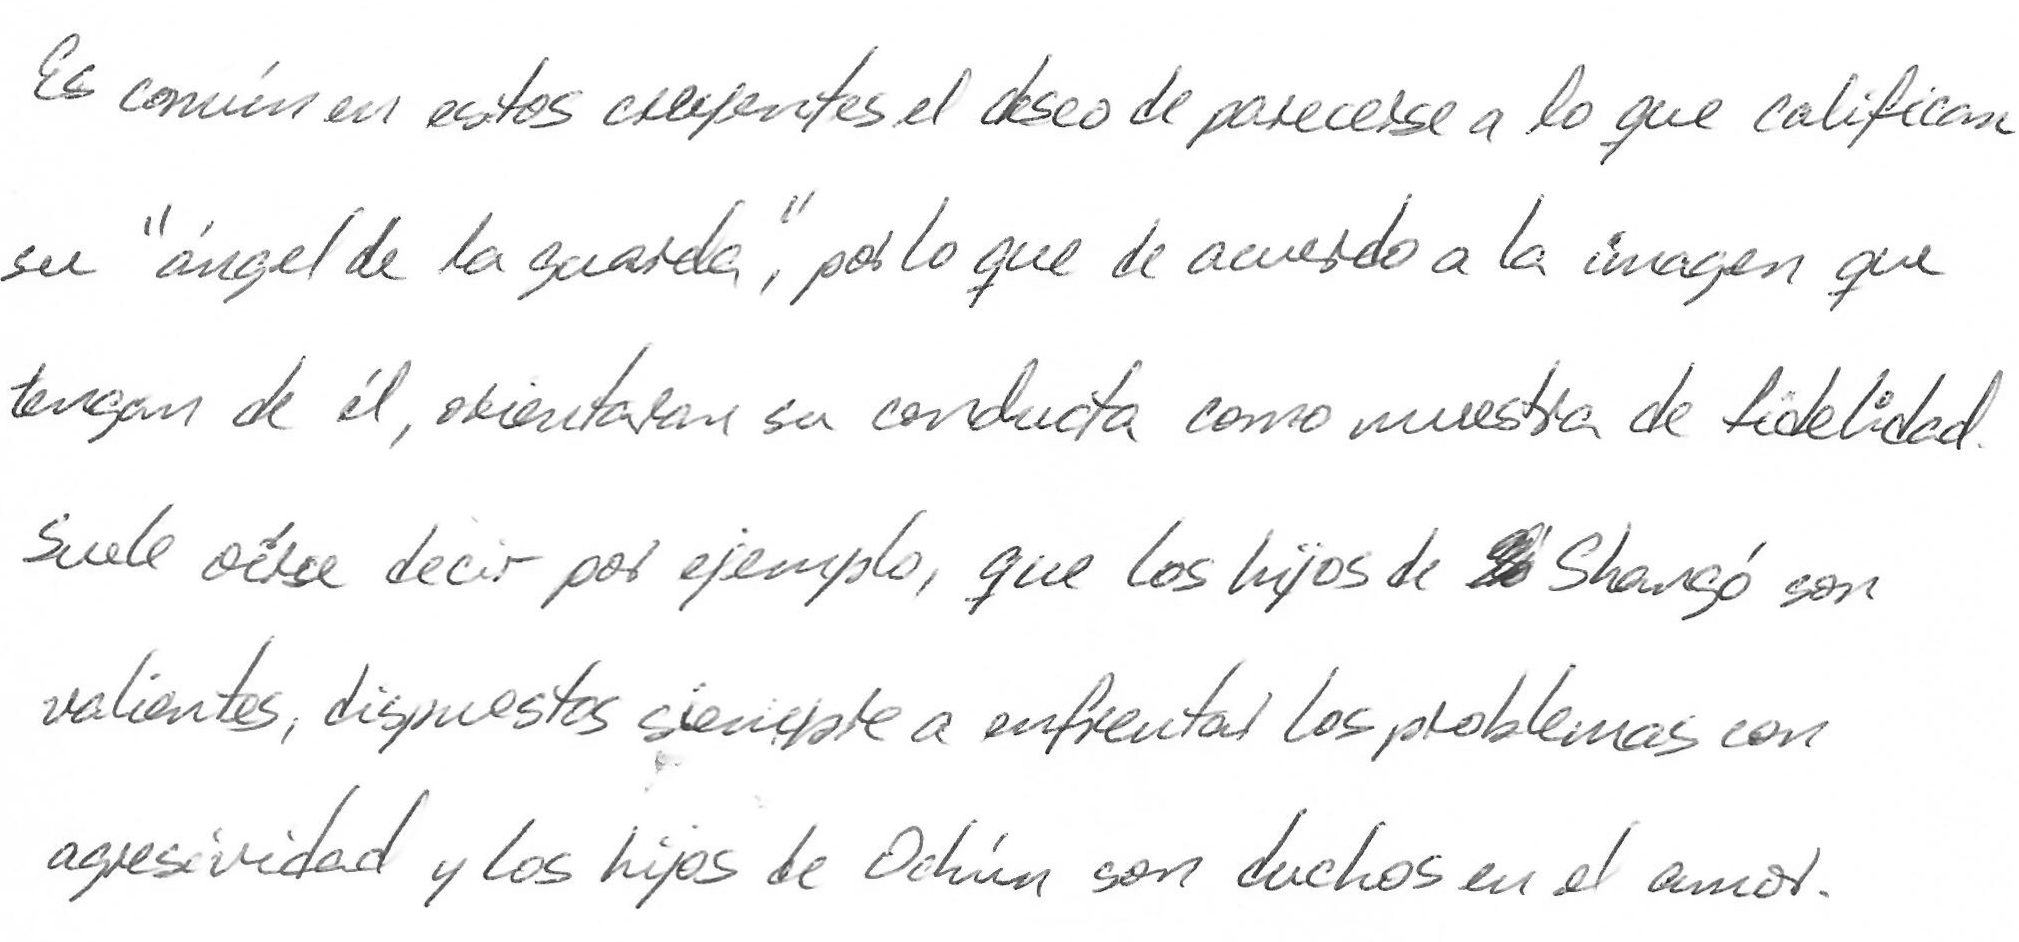 Es común en estos creyentes el deseo de parecerse a lo que califican
su "ángel de la guarda", por lo que de acuerdo a la imagen que
tengan de él, orientaran su conducta como muestra de fidelidad.
Suele oírse decir por ejemplo, que los hijos de Shangó son
valientes, dispuestos siempre a enfrentar los problemas con
agresividad y los hijos de Ochún son duchos en el amor.